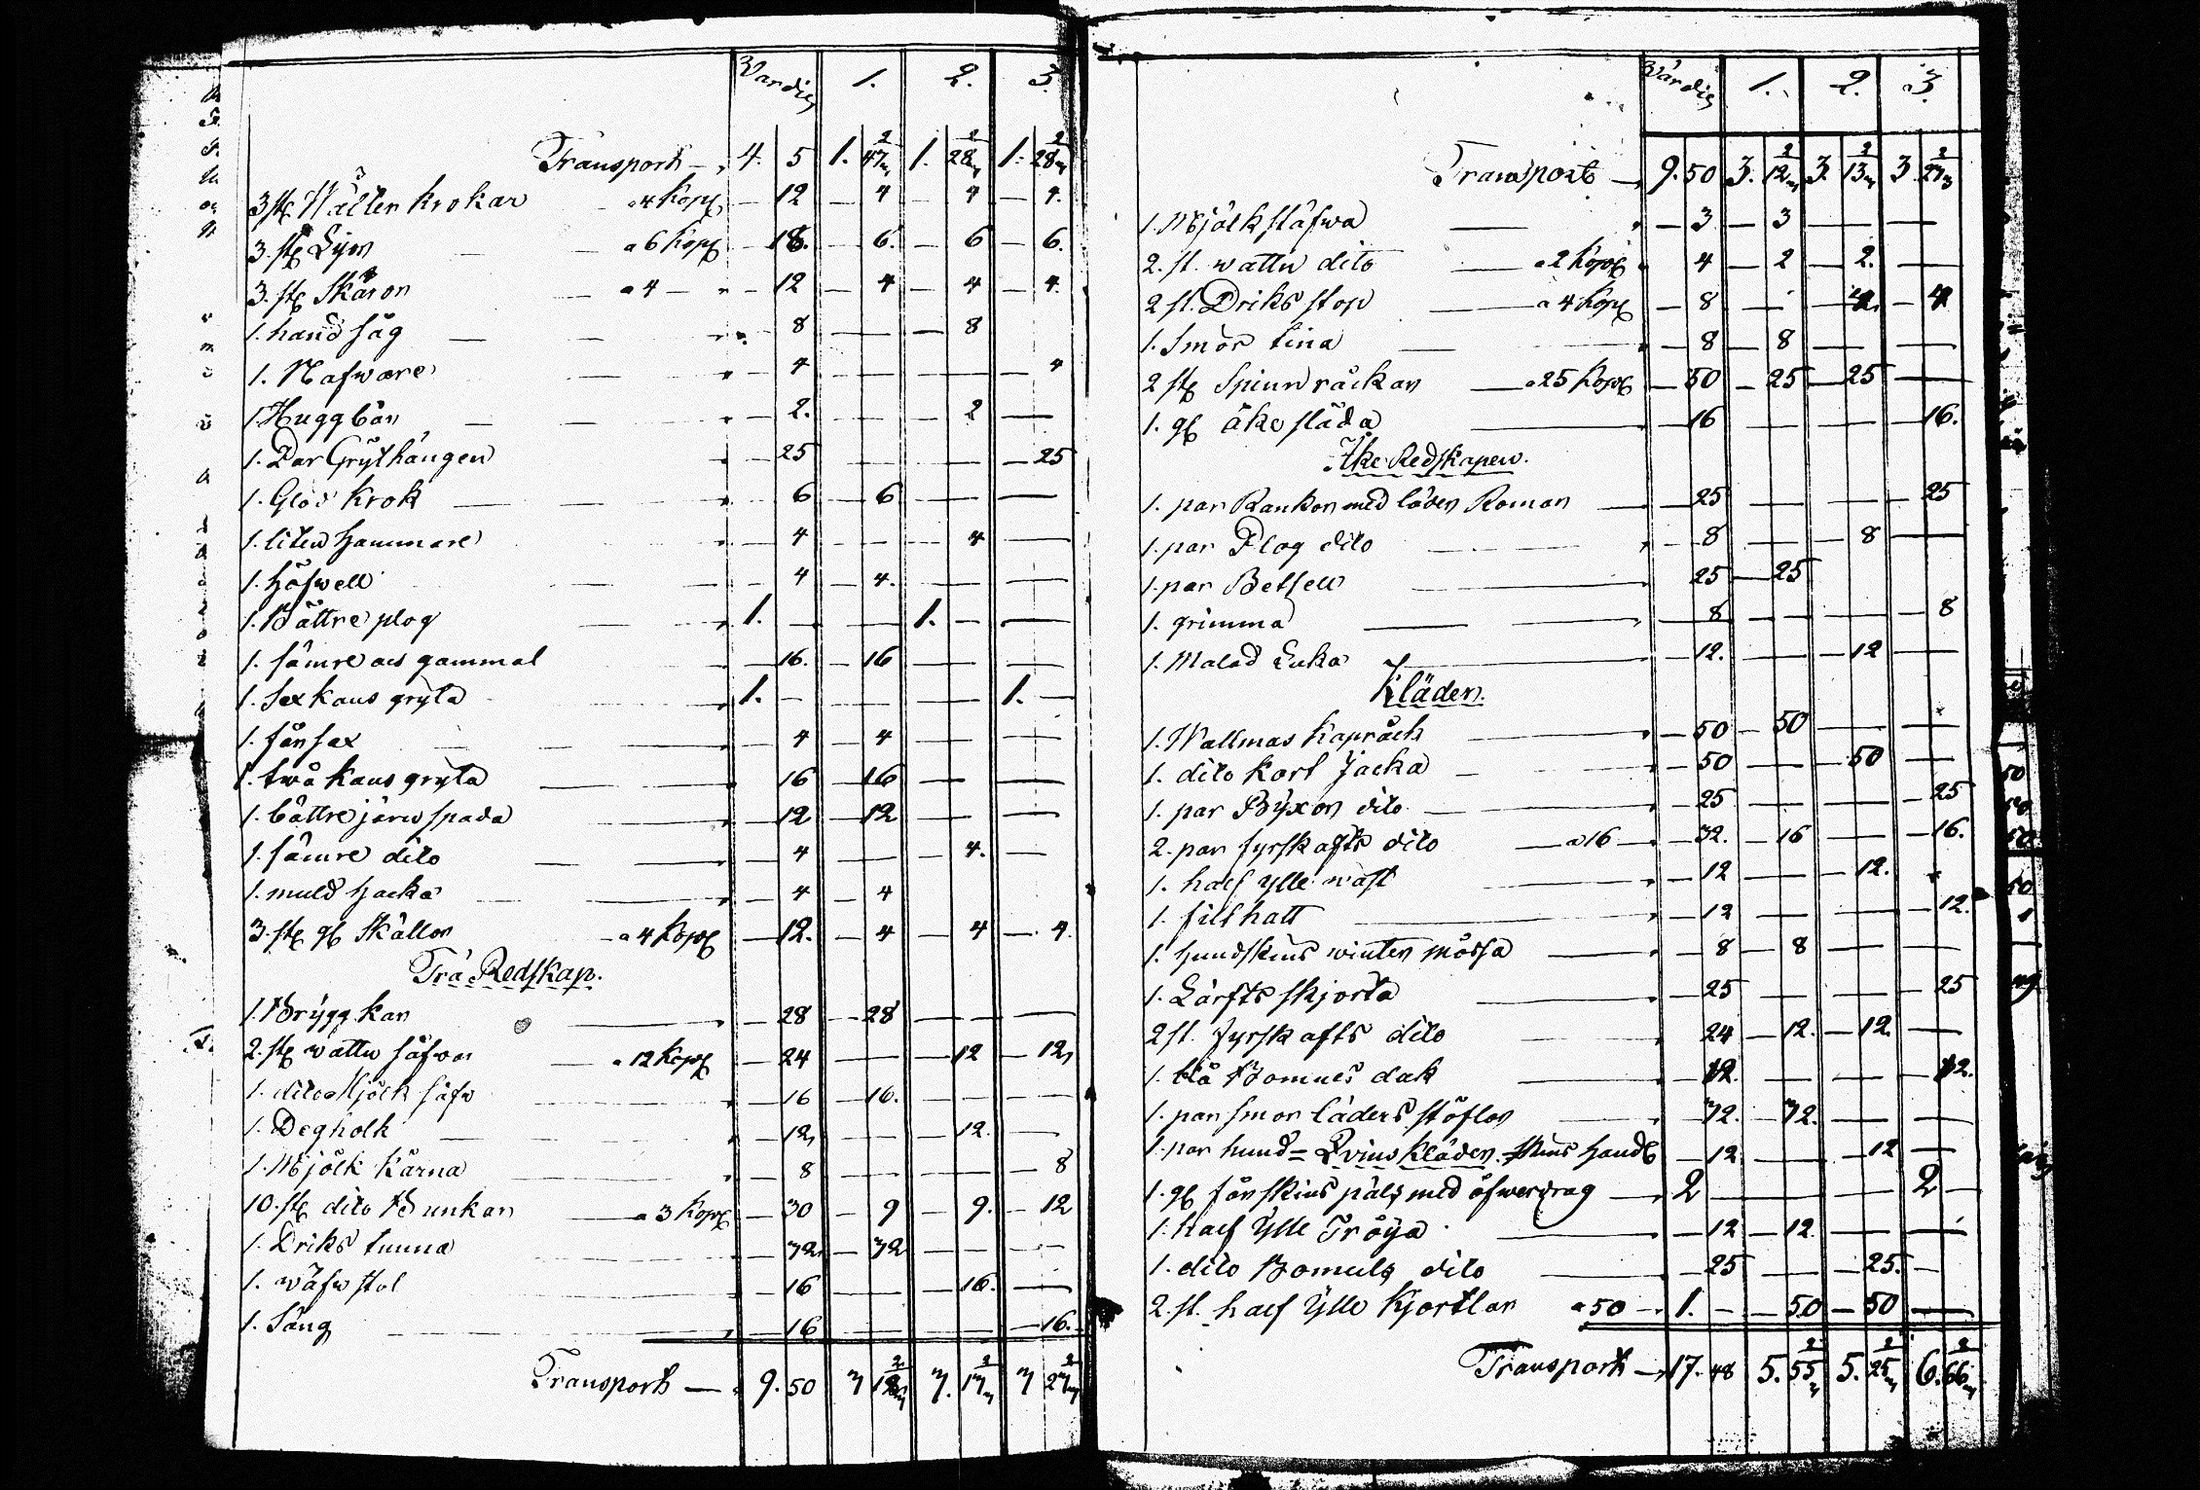 Värdie 1. 2. 3.
Transport — 4. 5 1. 47 2/3 1. 28 2/3 1. 28 2/3
3 st Wälten krokar a 4 Kop — 12 — 4 — 4 — 4.
3. st Lijor — a 6 Kop — 18. — 6. — 6 — 6.
3. st Skäron — a 4 — — 12 — 4 — 4 — 4.
1. hand såg — — 8 — — — 8
1. Nafware — 4 — — — 4
1. Huggbön — 2. — — 2 —
1. Par Grythängen — 25 — — — 25
1. Glöd krok — 6 — 6 — —
1. liten hammare — 4 — — 4 —
1. Höfwell — 4 — 4. — —
1. Bättre plog 1. — — 1. — —
1. sämre och gammal — 16. — 16 — —
1. Sex kans gryta 1. — — — 1. —
1. fånsax — 4 — 4 — —
1. twå kans gryta 16 — 16 — —
1. bättre järn spada — 12 — 12 — —
1. sämre dito — 4 — 4. —
1. muld hacka — 4 — 4
3. st gl Skällor — a 4 Kop — 12. — 4 — 4 — 4.
Trä Redskap.
1. Brygg kar — 28 — 28 — —
2. st wattu såfwar — a 12 Kop — 24 — — 12 — 12
1. dito Mjölk såfw — 16 — 16. — —
1. Degholk — 12 — — 12. —
1. Mjölk kärna — 8 — — — 8
10. st dito Bunkar — a 3 Kop — 30 — 9 — 9. — 12
1. Driks tunna — 32 — 32 — —
1. wäfwstol — 16 — — 16. —
1. Säng — 16 — — — 16.
Transport — 9. 50 3 12 2/3 3. 13 2/3 3 27 2/3
Värdie 1. 2. 3.
Transport — 9. 50 3. 12 2/3 3. 13 2/3 3 27 2/3
1. Mjölk stäfwa — — 3 — 3 — —
2. st. wattu dito — a 2 Kop 4 — 2 — 2. —
2 st. Driks stop — a 4 Kop — 8 — — 4 — 4
1. Smör tina — — 8 — 8 — —
2 st Spinn råckar — a 25 Kop — 50 — 25 — 25 —
1. gl åke släda — 16 — — — 16.
Åke Redskapen.
1. par Rankor med läder Roman — 25 — — — 25
1. par Plog dito — 8 — — 8 —
1. par Betsell — 25 — 25
1. grimma — 8 — — — 8
1. Malad Luka — 12. — — 12
Kläder.
1. Wallmas kapråck — 50 — 50 — —
1. dito kort Jacka — — 50 — — 50 —
1. par Byxor dito — 25 — — — 25
2. par fyrskafts dito — a 16 — 32. — 16 — — 16.
1. half ylle wäst — 12 — — 12.
1. filthatt — 12 — — — 12.
1. hundskins winter mössa — 8 — 8 — —
1. Lärfts skjorta — 25 — — — 25
2 st. fyrskafts dito — 24 — 12. — 12 —
1. blå Bomuls duk — 12. — — — 12.
1. par smorläders stöflor — 32. — 32. — —
1. par hund= Qvins Kläder. skins handl — 12 — — 12 —
1. gl fårskins päls med öfwerdrag — 2 — — — 2 —
1. half Ylle Tröya — 12 — 12. — —
1. dito Bomuls dito — 25 — — 25. —
2. st. half Ylle Kjortlar a 50 — 1. — — 50 — 50 —
Transport — 17. 48 5. 55 2/3 5. 25 2/3 6. 66 2/3